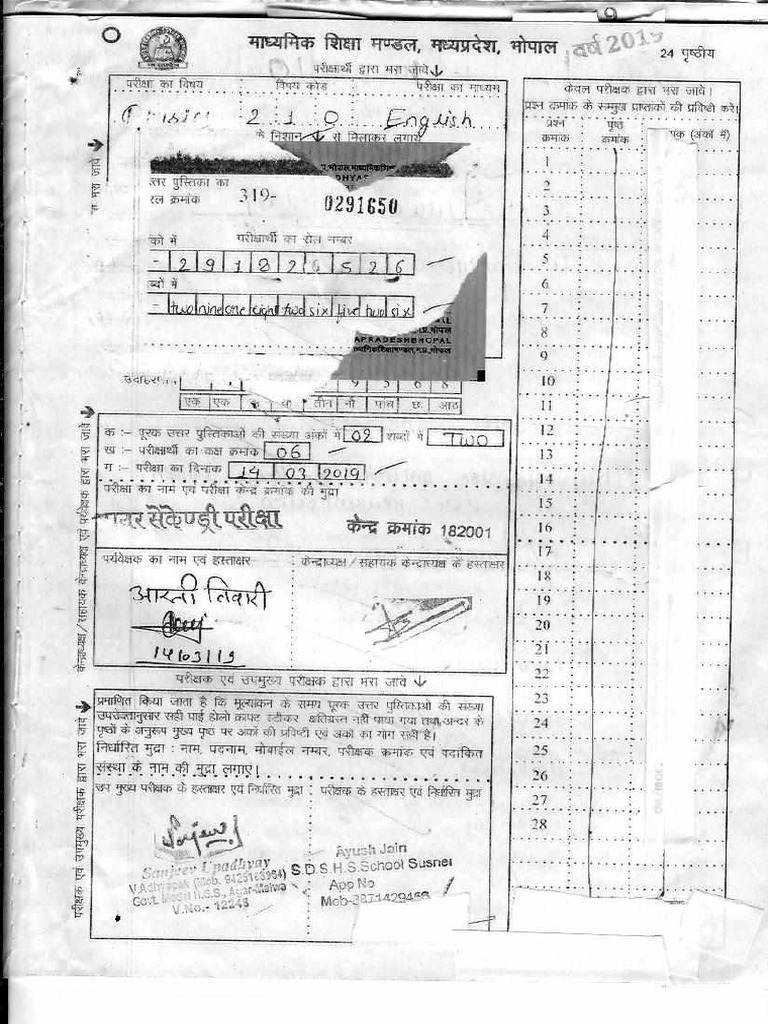 माध्यमिक शिक्षा मण्डल, मध्यप्रदेश, भोपाल
वर्ष 2019
24 पृष्ठीय
परीक्षार्थी द्वारा भरा जावे ↓
परीक्षा का विषय विषय कोड परीक्षा का माध्यम
210 English
के निशान ↓ से मिलाकर लगाये
त्तर पुस्तिका का
रल क्रमांक 319- 0291650
को में परीक्षार्थी का रोल नम्बर
- 2 9 1 8 2 6 5 2 6
ब्दों में
- two nine one eight two six five two six
APRADESHBHOPAL
ध्यमिकशिक्षामण्डल,म.प्र.भोपाल
उदाहरणार्थ
एक एक तीन नौ पांच छः आठ
क :- पूरक उत्तर पुस्तिकाओं की संख्या अंकों में 02 शब्दों में TWO
ख :- परीक्षार्थी का कक्ष क्रमांक 06
ग :- परीक्षा का दिनांक 14 03 2019
परीक्षा का नाम एवं परीक्षा केन्द्र क्रमांक की मुद्रा
सेकेण्ड्री परीक्षा केन्द्र क्रमांक 182001
पर्यवेक्षक का नाम एवं हस्ताक्षर केन्द्राध्यक्ष/सहायक केन्द्राध्यक्ष के हस्ताक्षर
आरती तिवारी
14/03/19
परीक्षक एवं उपमुख्य परीक्षक द्वारा भरा जावे ↓
प्रमाणित किया जाता है कि मूल्यांकन के समय पूरक उत्तर पुस्तिकाओं की संख्या
उपरोक्तानुसार सही पाई होलो क्राफ्ट स्टीकर क्षतिग्रस्त नहीं पाया गया तथा अन्दर के
पृष्ठों के अनुरूप मुख्य पृष्ठ पर अंकों की प्रविष्टी एवं अंकों का योग सही है।
निर्धारित मुद्रा : नाम, पदनाम, मोबाईल नम्बर, परीक्षक क्रमांक एवं पदांकित
संस्था के नाम की मुद्रा लगाए।
उप मुख्य परीक्षक के हस्ताक्षर एवं निर्धारित मुद्रा परीक्षक के हस्ताक्षर एवं निर्धारित मुद्रा
Sanjeev Upadhyay
Govt. Model H.S.S., Agar-Malwa
V.No.- 12248
Ayush Jain
S.D.S.H.S.School Susner
App No
केवल परीक्षक द्वारा भरा जावे।
प्रश्न क्रमांक के सम्मुख प्राप्तांकों की प्रविष्टी करें।
प्रश्न क्रमांक पृष्ठ क्रमांक (अंकों में)
1
2
3
4
5
6
7
8
9
10
11
12
13
14
15
16
17
18
19
20
21
22
23
24
25
26
27
28
केन्द्राध्यक्ष/सहायक केन्द्राध्यक्ष एवं पर्यवेक्षक द्वारा भरा जावे
परीक्षक एवं उपमुख्य परीक्षक द्वारा भरा जावे